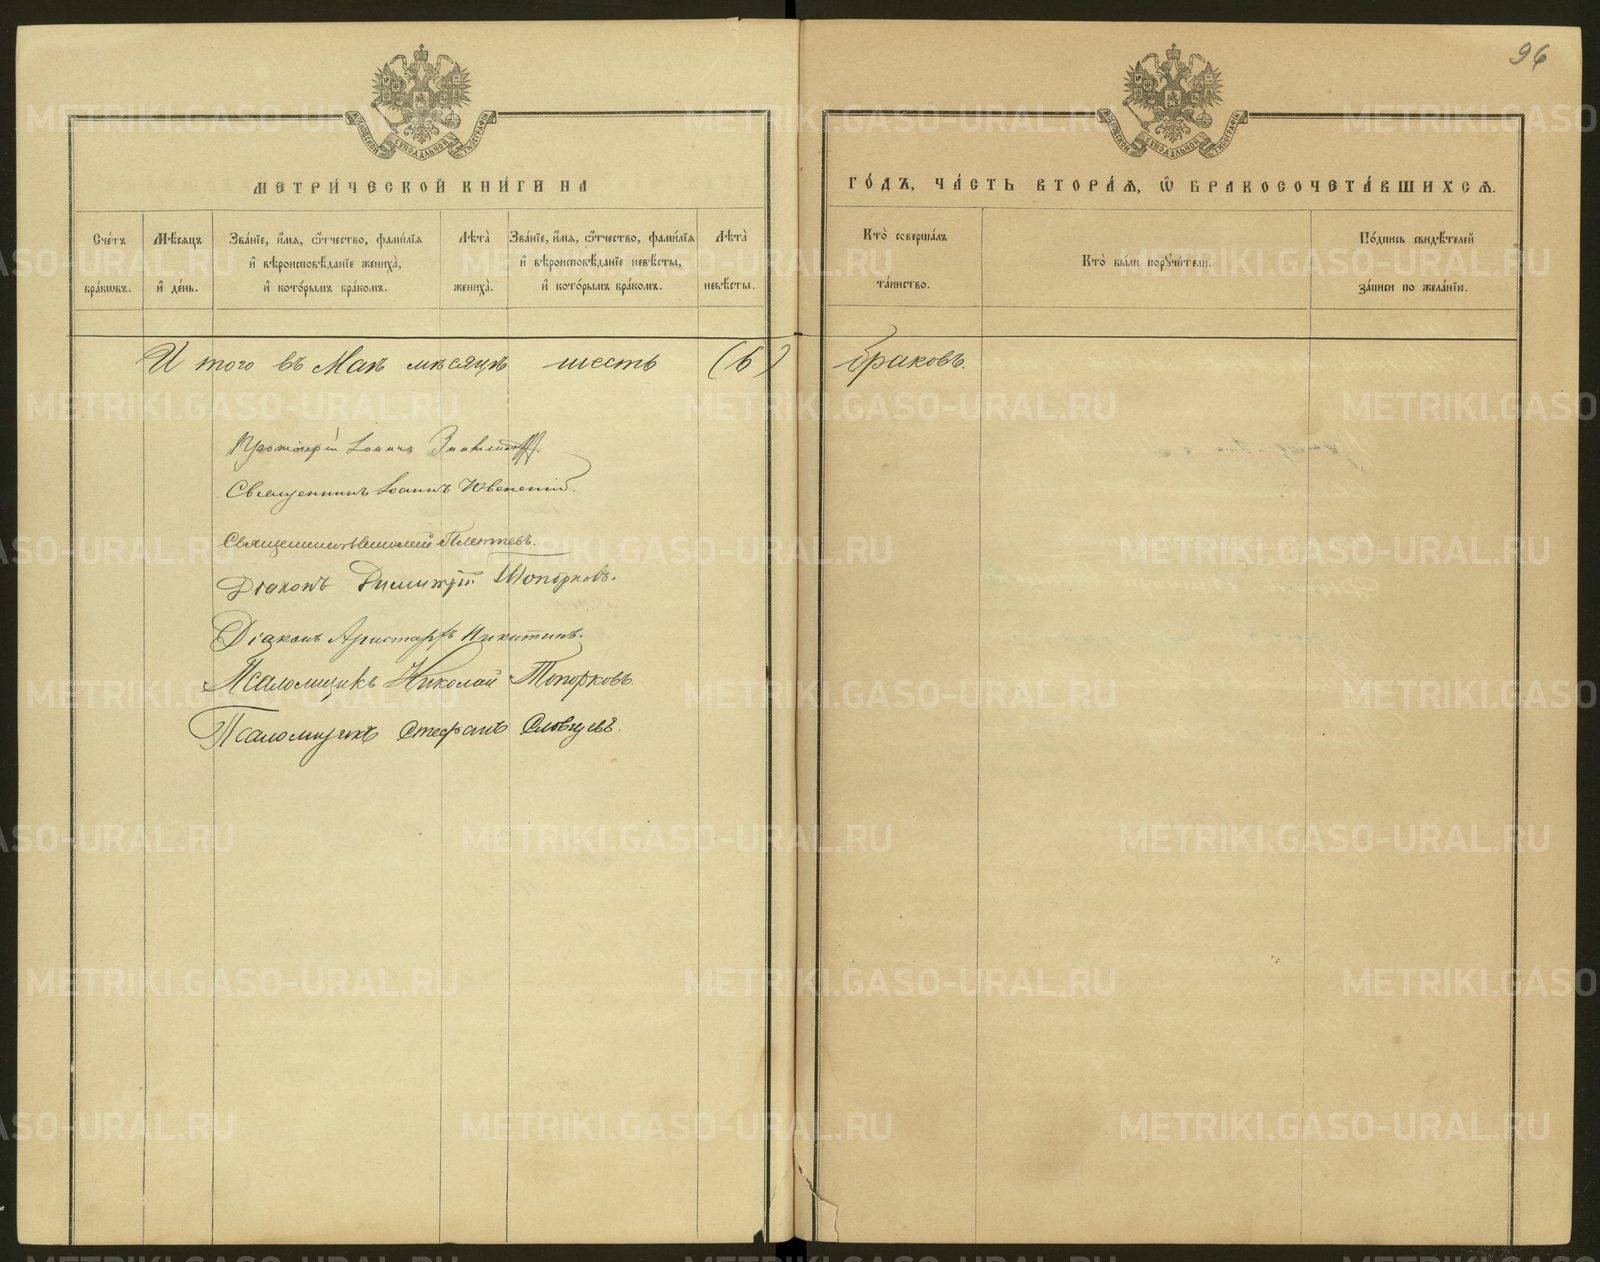 96
МОСКОВСКОЙ СѴНОДАЛЬНОЙ ТИПОГРАФІИ
МОСКОВСКОЙ СѴНОДАЛЬНОЙ ТИПОГРАФІИ
МЕТРИ́ЧЕСКОЙ КНИ́ГИ НА
ГО́ДЪ, ЧА́СТЬ ВТОРА́Ѧ, Ѡ҆ БРАКОСОЧЕТА́ВШИХСѦ.
Сче́тъ бра́кѡвъ.
Мѣ́сѧцъ и҆ де́нь.
Зва́нїе, и҆́мѧ, ѻ҆́тчество, фами́лїѧ и҆ вѣроисповѣ́данїе жениха̀, и҆ кото́рымъ бра́комъ.
Лѣта̀ жениха̀.
Зва́нїе, и҆́мѧ, ѻ҆́тчество, фами́лїѧ и҆ вѣроисповѣ́данїе невѣ́сты, и҆ кото́рымъ бра́комъ.
Лѣта̀ невѣ́сты.
Кто̀ соверша́лъ та́инство.
Кто̀ бы́ли порꙋчи́тели.
По́дпись свидѣ́телей за́писи по жела́нїю.
И того въ Маѣ мѣсяцѣ шесть (6) браковъ.
Протоіерей Іоаннъ
Священникъ Іоаннъ Ювенскій.
Священникъ Плетневъ.
Діаконъ Димитрій Топорковъ.
Діаконъ Аристархъ Никитинъ.
Псаломщикъ Николай Топорковъ.
Псаломщикъ Стефанъ Словцевъ.
METRIKI.GASO-URAL.RU